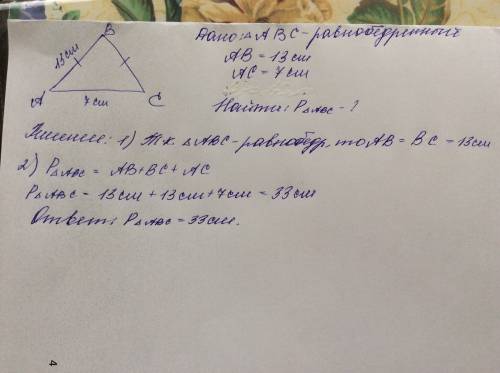 B
Дано: △ABC - равнобедренный
13см
AB = 13см
AC = 7см
A
7см
C
Найти: P△ABC - ?
Решение: 1) Т.к. △ABC - равнобедр, то AB = BC = 13см
2) P△ABC = AB + BC + AC
P△ABC = 13см + 13см + 7см = 33см
Ответ: P△ABC = 33см.
4